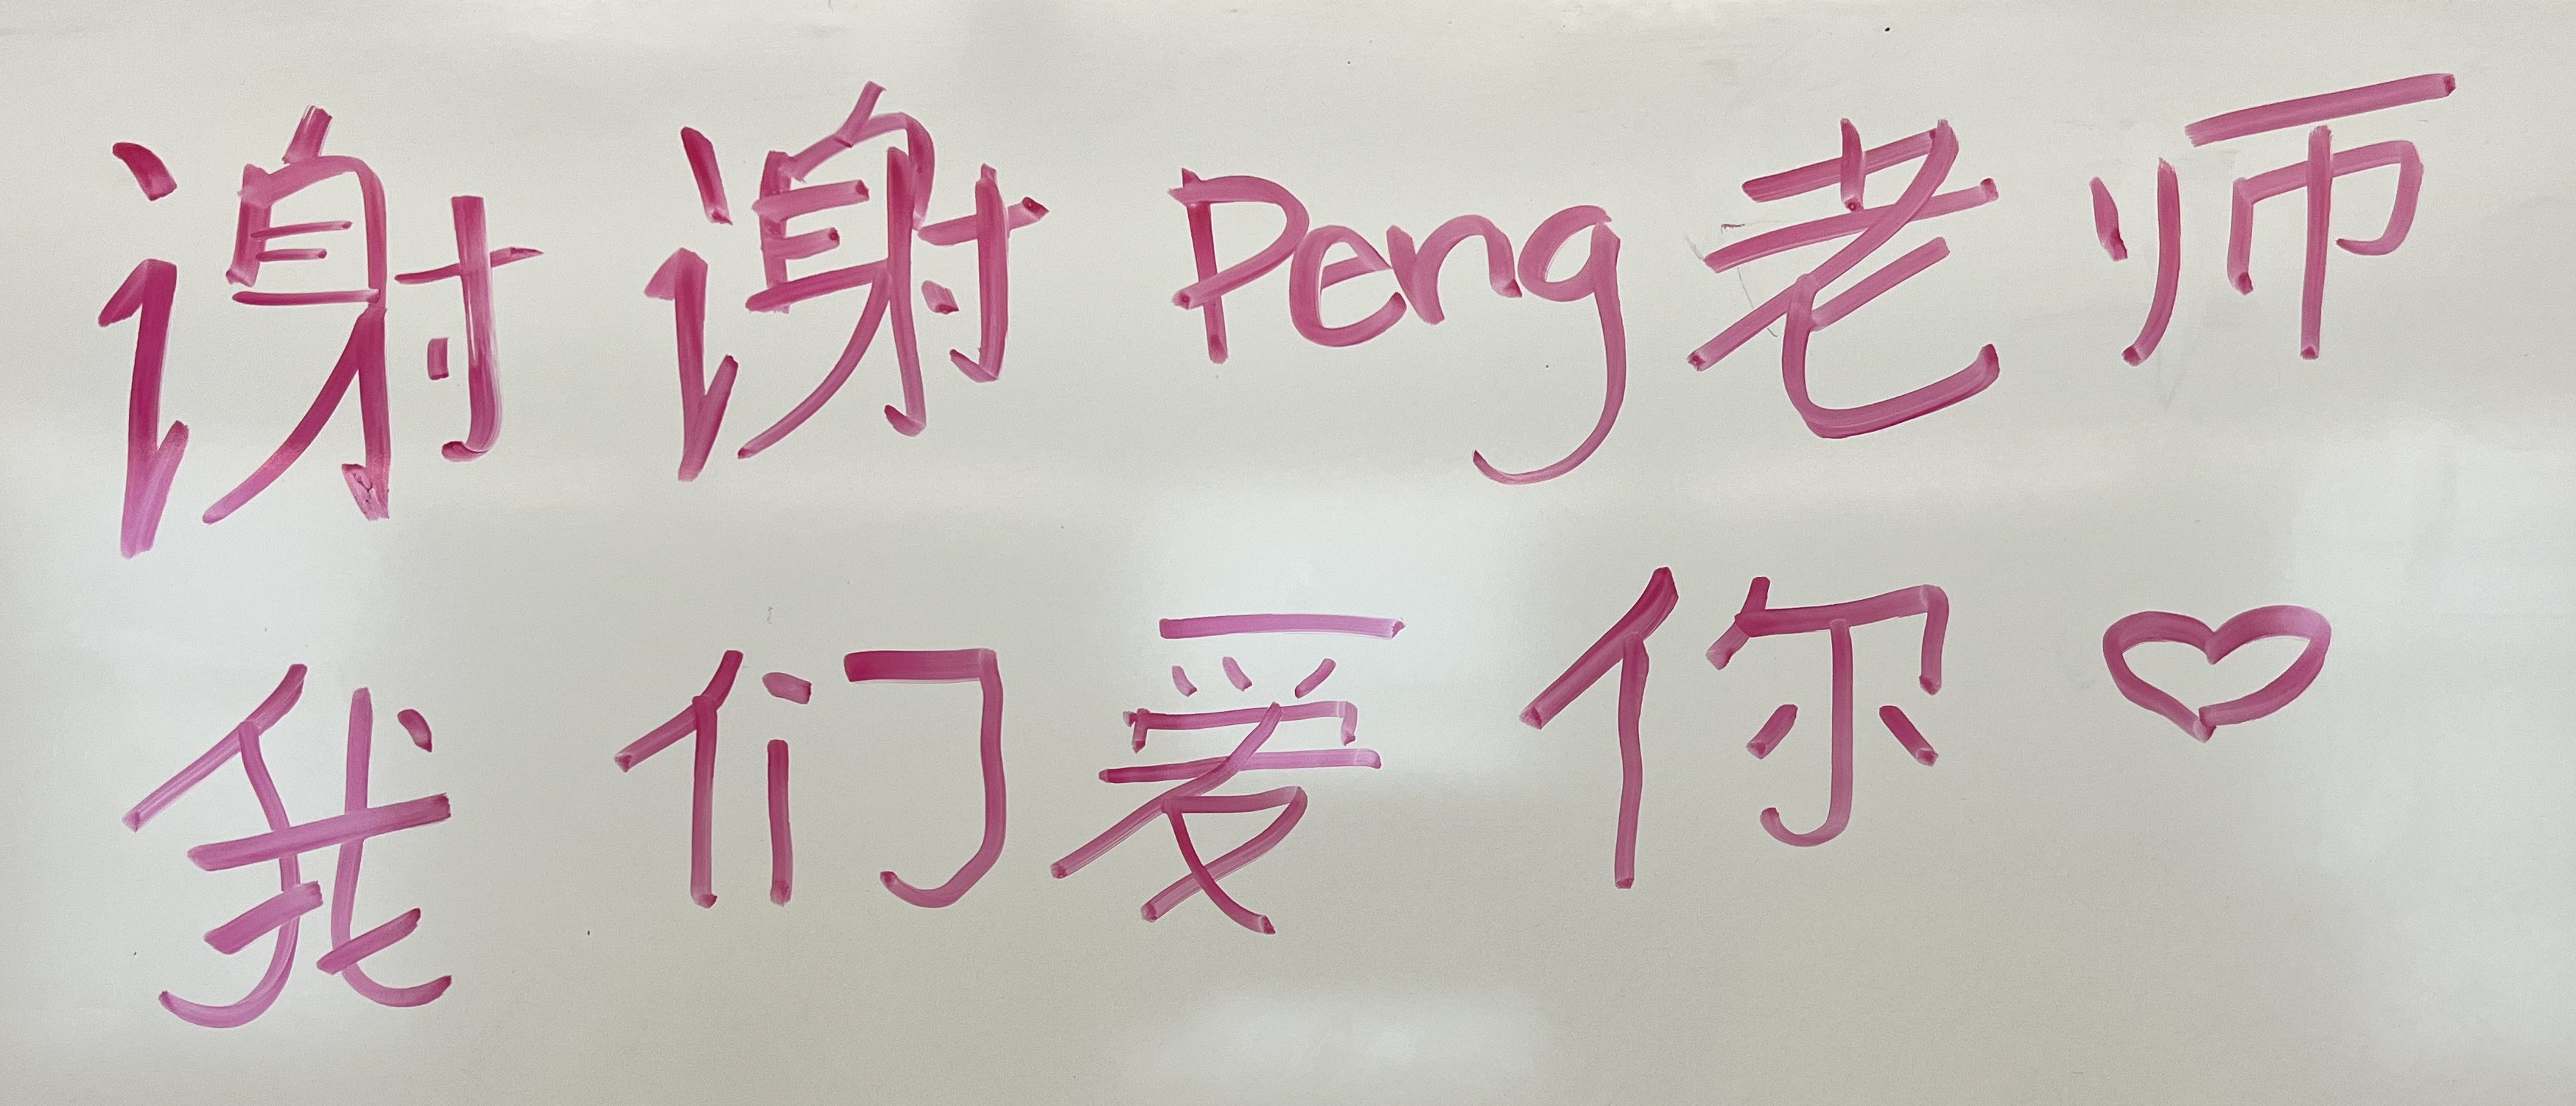 谢谢Peng老师
我们爱你♡